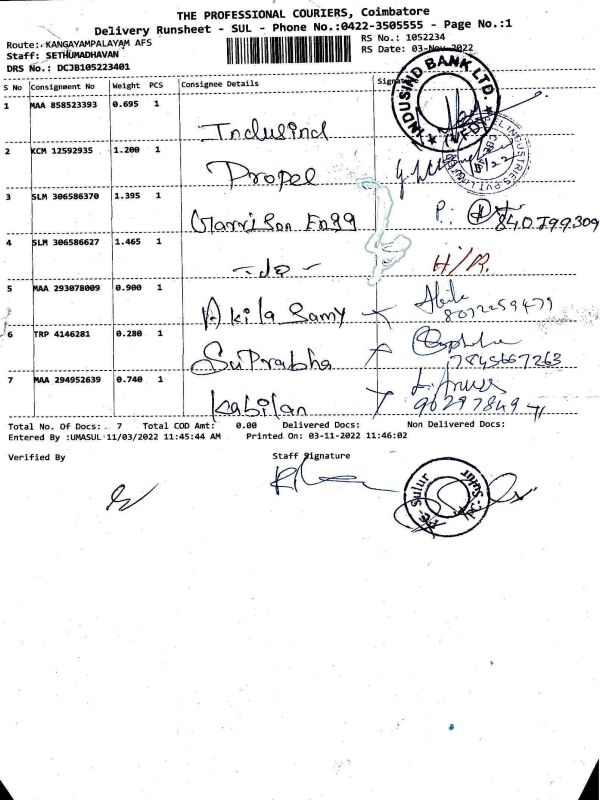 THE PROFESSIONAL COURIERS, Coimbatore
Delivery Runsheet - SUL - Phone No.:0422-3505555 - Page No.:1
Route: KANGAYAMPALAYAM AFS RS No.: 1052234
Staff: SETHUMADHAVAN RS Date: 03-Nov-2022
DRS No.: DCJB105223401
S No Consignment No Weight PCS Consignee Details
INDUSIND BANK LTD.
1 MAA 858523393 0.695 1 Indusind
2 KCM 12592935 1.200 1 Propel
INDUSTRIES PVT.
3 SLM 306586370 1.395 1 Garrison Engg P:
4 SLM 306586627 1.465 1 - do - H/R.
5 MAA 293078009 0.900 1 Akila Samy
8072259479
6 TRP 4146281 0.280 1 Suprabha
7845667263
7 MAA 294952639 0.740 1 Kabilan
Total No. Of Docs: 7 Total COD Amt: 0.00 Delivered Docs: Non Delivered Docs:
Entered By :UMASUL 11/03/2022 11:45:44 AM Printed On: 03-11-2022 11:46:02
Verified By Staff Signature
Sulur